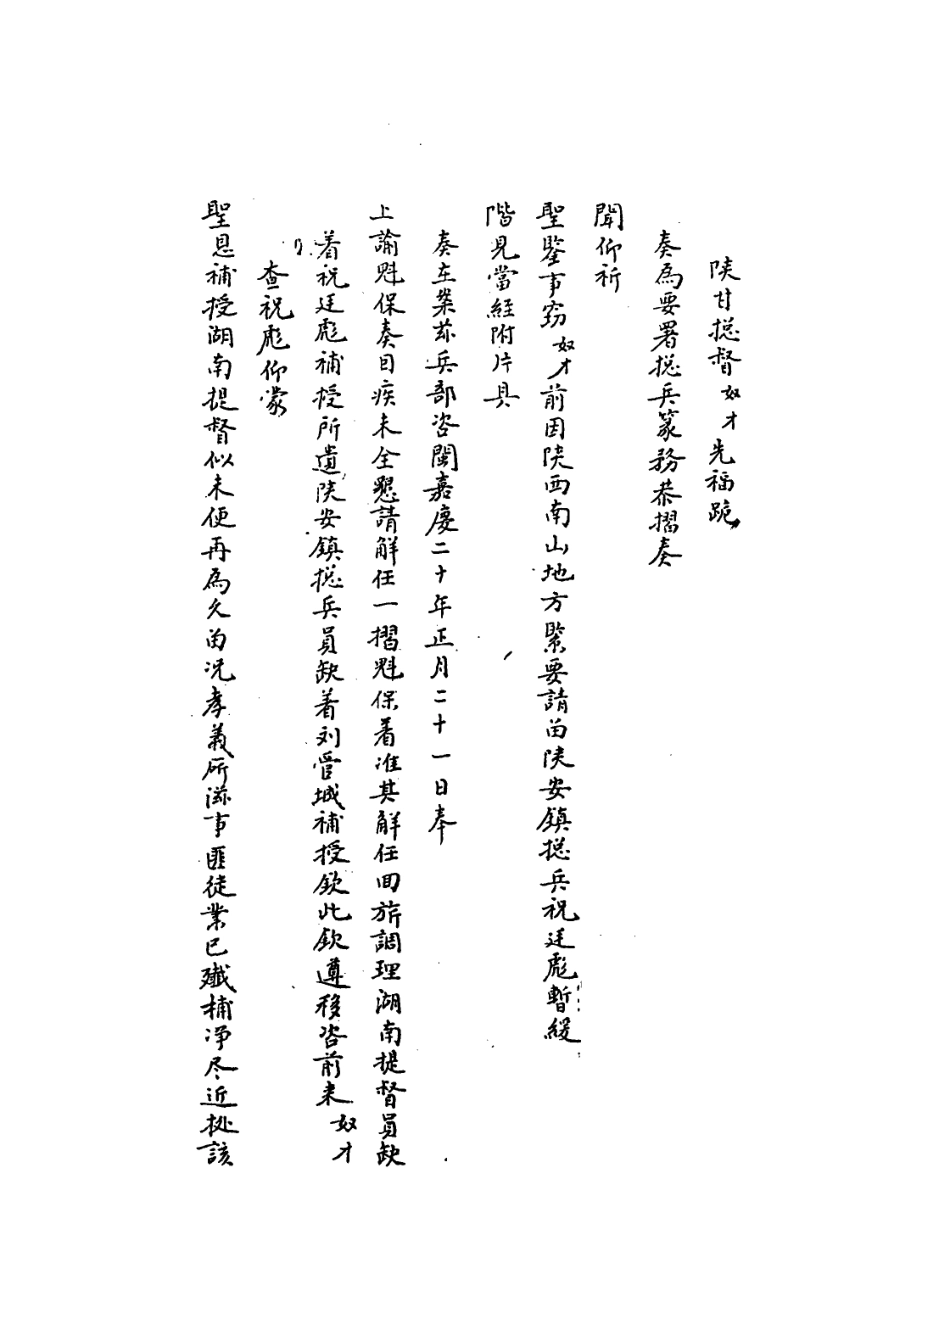 陕甘揔督奴才先福跪
奏為要署揔兵篆務恭摺奏
聞仰祈
聖鑒事窃奴才前因陕西南山地方緊要請留陕安鎮揔兵祝廷彪暫緩
階見當經附片具
奏在案茲兵部咨閩嘉慶二十年正月二十一日奉
上諭魁保奏目疾未全懇請解任一摺魁保着准其解任回旂調理湖南提督員缺
着祝廷彪補授所遺陕安鎮揔兵員缺着刘管城補授欽此欽遵移咨前来奴才
查祝彪仰蒙
聖恩補授湖南提督似未便再為久留况孝義所滋事匪徒業已殲捕净尽近拠該